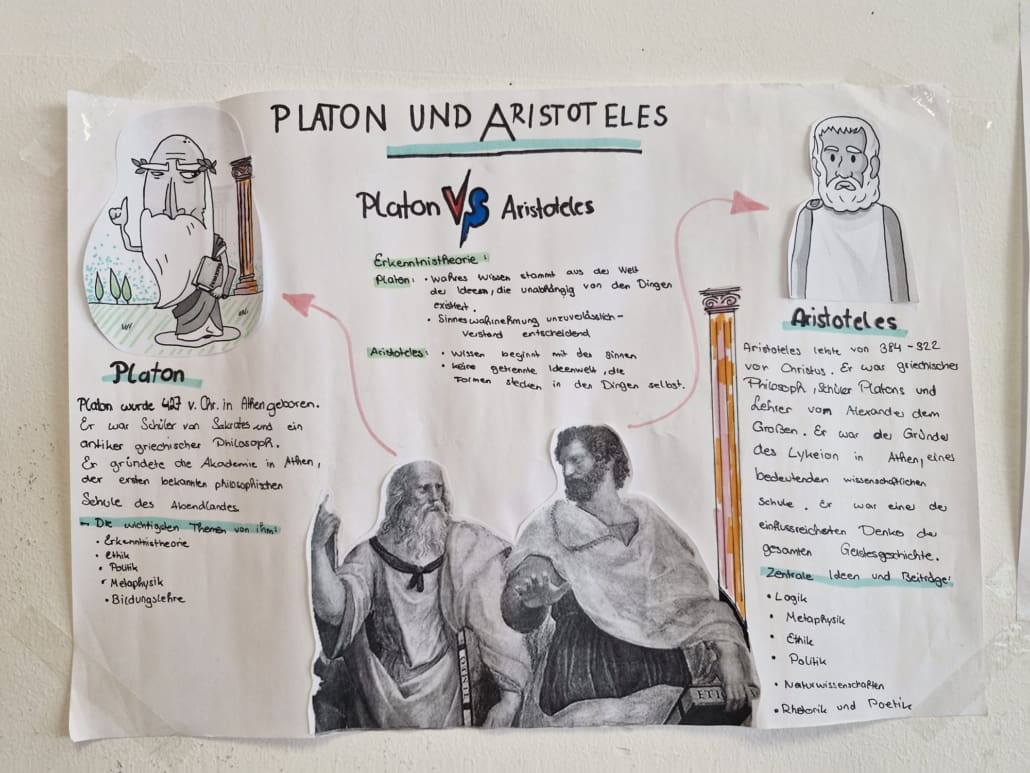 PLATON UND ARISTOTELES
Platon VS Aristoteles
Erkenntnistheorie:
Platon: • Wahres Wissen stammt aus der Welt
der Ideen, die unabhängig von den Dingen
existiert.
• Sinneswahrnehmung unzuverlässlich -
Verstand entscheidend
Aristoteles: • Wissen beginnt mit den Sinnen
• Keine getrennte Ideenwelt, die
Formen stecken in den Dingen selbst.
Platon
Platon wurde 427 v. Chr. in Athen geboren.
Er war Schüler von Sokrates und ein
antiker griechischer Philosoph.
Er gründete die Akademie in Athen,
der ersten bekannten philosophischen
Schule des Abendlandes.
Die wichtigsten Themen von ihm:
• Erkenntnistheorie
• Ethik
• Politik
• Metaphysik
• Bildungslehre
Aristoteles
Aristoteles lebte von 384 - 322
vor Christus. Er war griechischer
Philosoph, Schüler Platons und
Lehrer vom Alexander dem
Großen. Er war der Gründer
des Lykeion in Athen, eines
bedeutenden wissenschaftlichen
Schule. Er war einer der
einflussreichsten Denker der
gesamten Geistesgeschichte.
Zentrale Ideen und Beiträge:
• Logik
• Metaphysik
• Ethik
• Politik
• Naturwissenschaften
• Rhetorik und Poetik
TIMEO
ETI